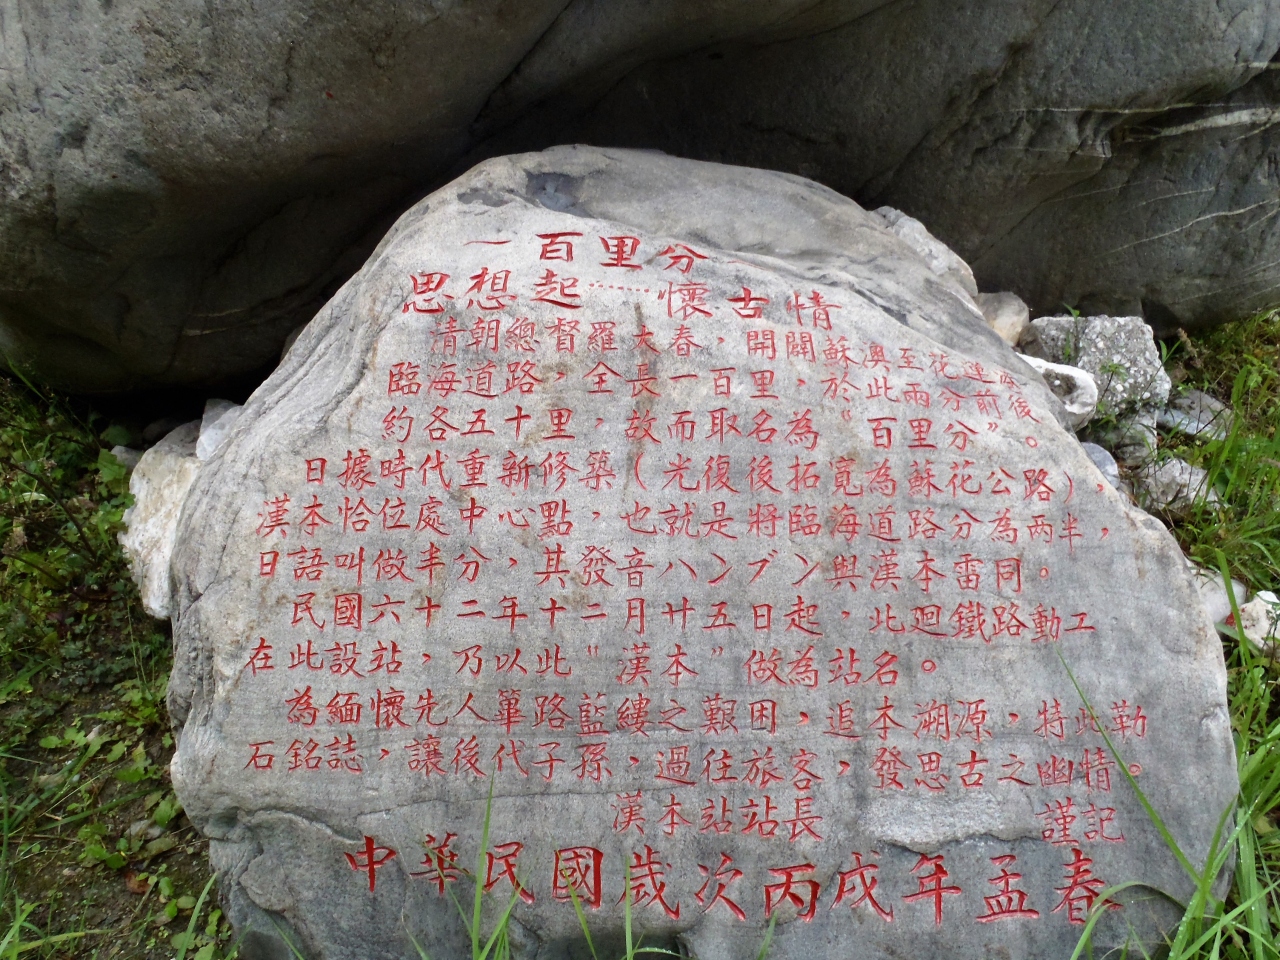 一百里分
思想起⋯⋯懷古情
清朝總督羅大春，開闢蘇澳至花蓮
臨海道路，全長一百里，於此兩分前後
約各五十里，故而取名為“百里分”。
日據時代重新修築（光復後拓寬為蘇花公路），
漢本恰位處中心點，也就是將臨海道路分為兩半，
日語叫做半分，其發音ハンブン與漢本雷同。
民國六十二年十二月廿五日起，北迴鐵路動工
在此設站，乃以此“漢本”做為站名。
為緬懷先人篳路藍縷之艱困，追本溯源，特此勒
石銘誌，讓後代子孫，過往旅客，發思古之幽情。
漢本站站長 謹記
中華民國歲次丙戌年孟春